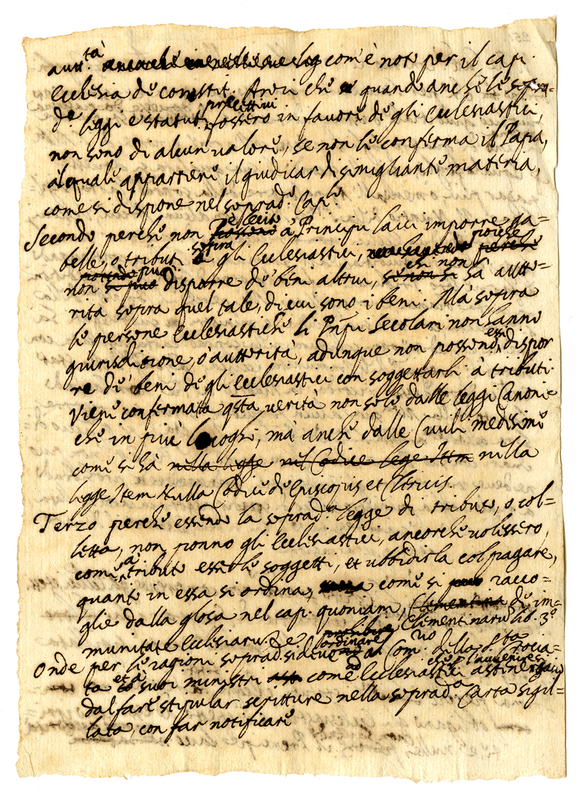 autt.tà com'è noto per il cap.
Ecclesia de constit. Anzi che quando anche le sopra-
de leggi e statuti precettivi fossero in favore de gli Ecclesiastici,
non sono di alcun valore, se non le conferma il Papa,
al quale appartiene il giudicar di simigliante materia,
come si dispone nel soprad. cap.
Secondo perche non è lecito à Principi laici imporre ga-
belle, o tributi sopra gli Ecclesiastici,
non disporre de beni altrui, chi non hà autto-
rità sopra quel tale, di cui sono i beni. Mà sopra
le persone Ecclesiastiche li Pnpi Secolari non hanno
giurisdizione, o autterità, adunque non possono essi dispor
re de beni de gli Ecclesiastici con soggettarli à tributi.
Viepiu confermata qsta verità non solo dalle leggi Canoni-
che in piu luoghi, mà anche dalle Civili medesime
come si hà nulla legge nel Codice lege Item nella
legge Item nulla Codice de Episcopis et Clericis.
Terzo perche essendo la soprad. legge di tributo, o col-
letta, non ponno gli Ecclesiastici, ancorche volessero,
come à tributo esserle soggetti, et ubbidirla col pagare,
quanto in essa si ordina, come si racco-
glie dalla glosa nel cap. quoniam, Clementina de im-
munitate Ecclesiarum Clementinarum lib. 3.º
Onde per le ragioni sopradte ordinare al Com.rio della Sta Crocia-
ta et à suoi ministri come Ecclesiastici che per l'avvenire
dal fare stipular scritture nella soprad.a Carta sigil-
lata, con far notificare